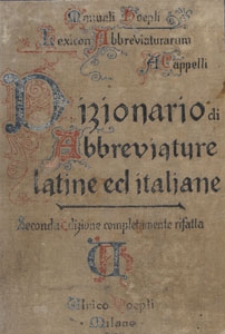 Manuali Hoepli
Lexicon Abbreviaturarum
A. Cappelli
Dizionario di
Abbreviature
latine ed italiane
Seconda Edizione completamente rifatta
Ulrico Hoepli
Milano